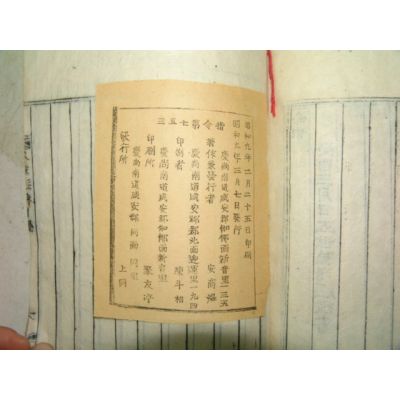 昭和九年二月二十五日印刷
昭和九年三月七日發行
指令第七五三
著作兼發行者
慶尚南道咸安郡伽倻面新音里一三五
安商
印刷者
慶尚南道咸安郡北面
里一九四
陳斗相
印刷所
慶尚南道咸安郡伽倻面新音里
聚友亭
發行所
慶尚南道咸安郡
上仝